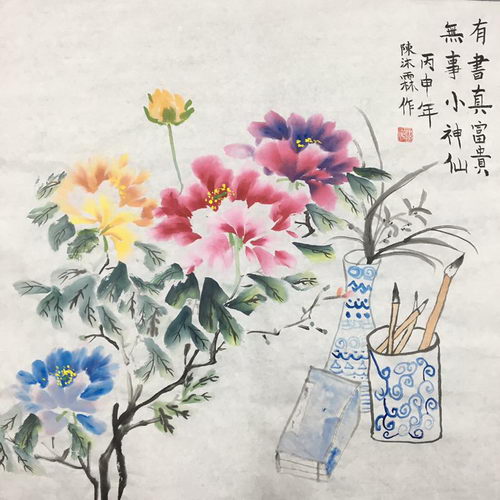 有書真富貴
無事小神仙
丙申年
陳沐霖作